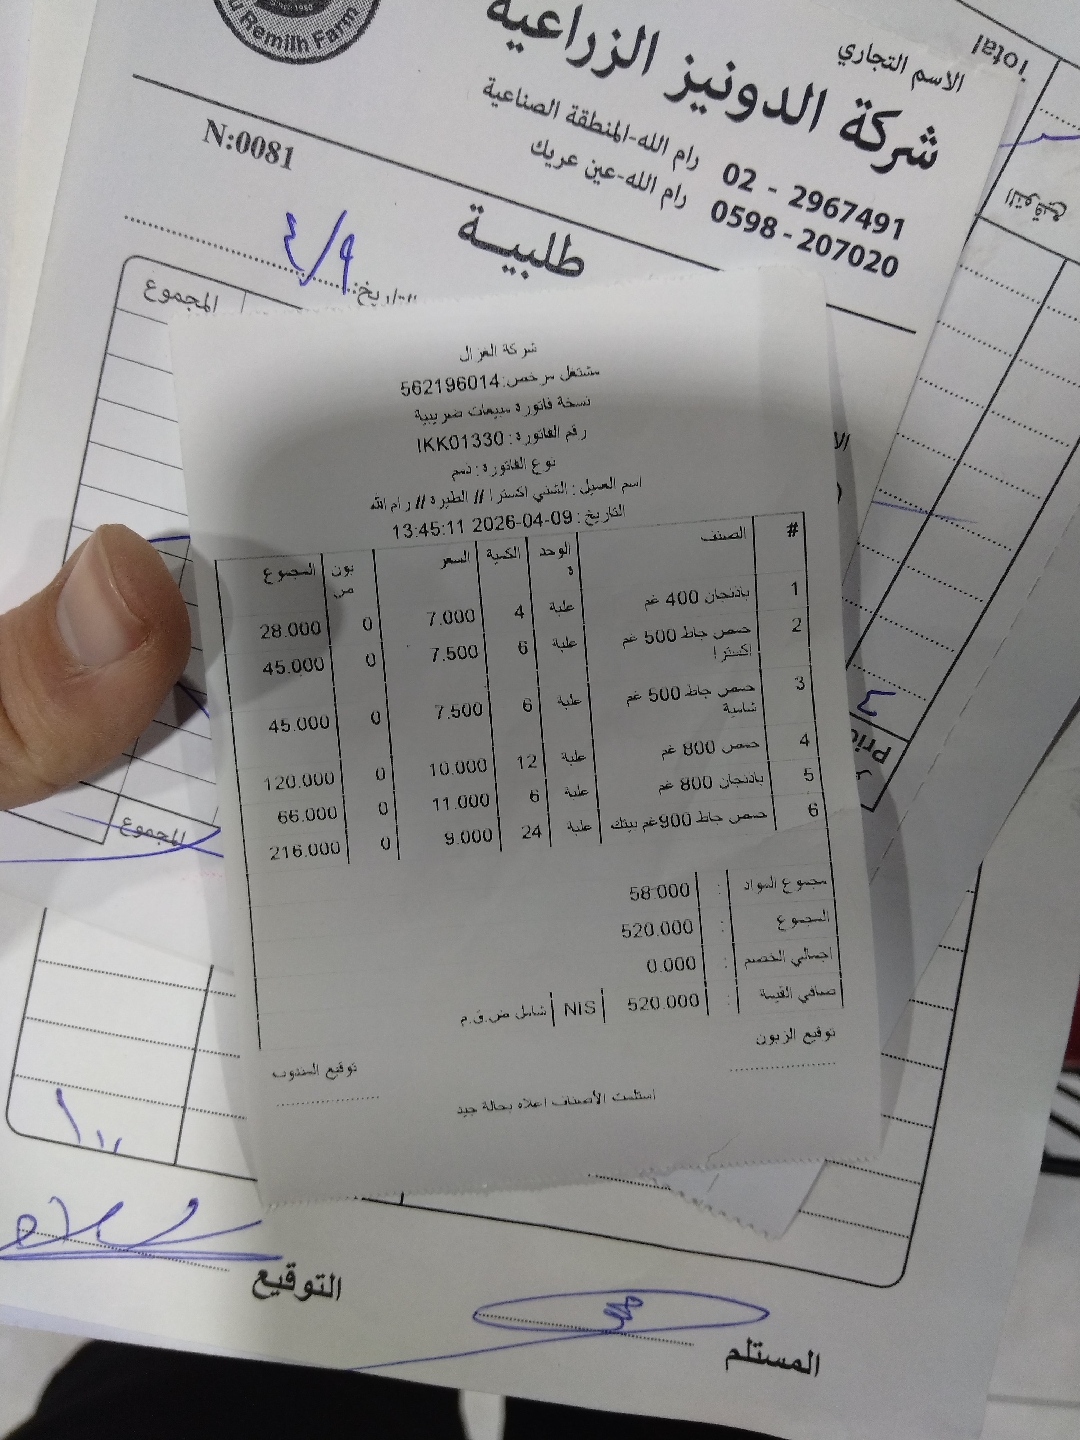 Remilh Farm
الاسم التجاري
شركة الدونيز الزراعية
02 - 2967491 رام الله-المنطقة الصناعية
0598 - 207020 رام الله-عين عريك
N:0081
طلبية
التاريخ: ٤/٩
المجموع
المجموع
Total
التوقيع
شركة الغزال
مشتغل مرخص:562196014
نسخة فاتورة مبيعات ضريبية
رقم الفاتورة : IKK01330
نوع الفاتورة : ذمم
اسم العميل : الشني اكسترا // الطيره // رام الله
التاريخ : 09-04-2026 13:45:11
# الصنف الوحدة الكمية السعر بونص المجموع
1 باذنجان 400 غم علبة 4 7.000 0 28.000
2 حمص جاط 500 غم اكسترا علبة 6 7.500 0 45.000
3 حمص جاط 500 غم شامية علبة 6 7.500 0 45.000
4 حمص 800 غم علبة 12 10.000 0 120.000
5 باذنجان 800 غم علبة 6 11.000 0 66.000
6 حمص جاط 900غم بيتك علبة 24 9.000 0 216.000
مجموع المواد : 58.000
المجموع : 520.000
اجمالي الخصم : 0.000
صافي القيمة : 520.000 NIS شامل ض.ق.م
توقيع الزبون
توقيع المندوب
استلمت الأصناف اعلاه بحالة جيد
التوقيع
المستلم